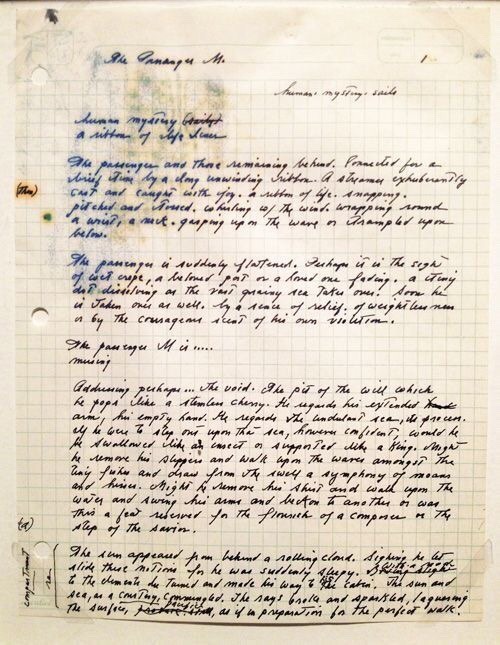 The Passenger M.
1
human. mystery. sails
human mystery
a ribbon of life lines
The passenger and those remaining behind. Connected for a
brief time by a long unwinding ribbon. A streamer exhuberantly
cast and caught with joy. a ribbon of life. snapping.
pitched and tossed. whirling w/ the wind. wrapping round
a wrist, a neck. gasping upon the wave or trampled upon
below.
(two)
The passenger is suddenly flattened. Perhaps it is the sight
of wet crepe, a beloved port or a loved one fading. a tiny
dot dissolving as the vast grainy sea takes over. Soon he
is taken over as well. by a sense of relief. of weightlessness
or by the courageous scent of his own violition.
The passenger M is.....
musing
Addressing perhaps... the void. The pit of the will which
he pops like a stemless cherry. He regards his extended
arm, his empty hand. He regards the undulant sea, its process.
all he were to step out upon that sea, however confident, would he
be swallowed like an insect or supported like a King. Might
he remove his slippers and walk upon the waves amongst the
tiny fishes and draw from the swell a symphony of moans
and hisses. Might he remove his shirt and walk upon the
water and swing his arms and beckon to another or was
this a feat reserved for the flourish of a composer or the
step of the savior.
compartment
The sun appeared from behind a rolling cloud. Sighing he let
slide these notions for he was suddenly sleepy.
to the elements he turned and made his way to the cabin. The sun and
sea, as a courtesy, commingled. The rays broke and sparkled, laquering
the surface, pacific, as if in preparation for the perfect walk.